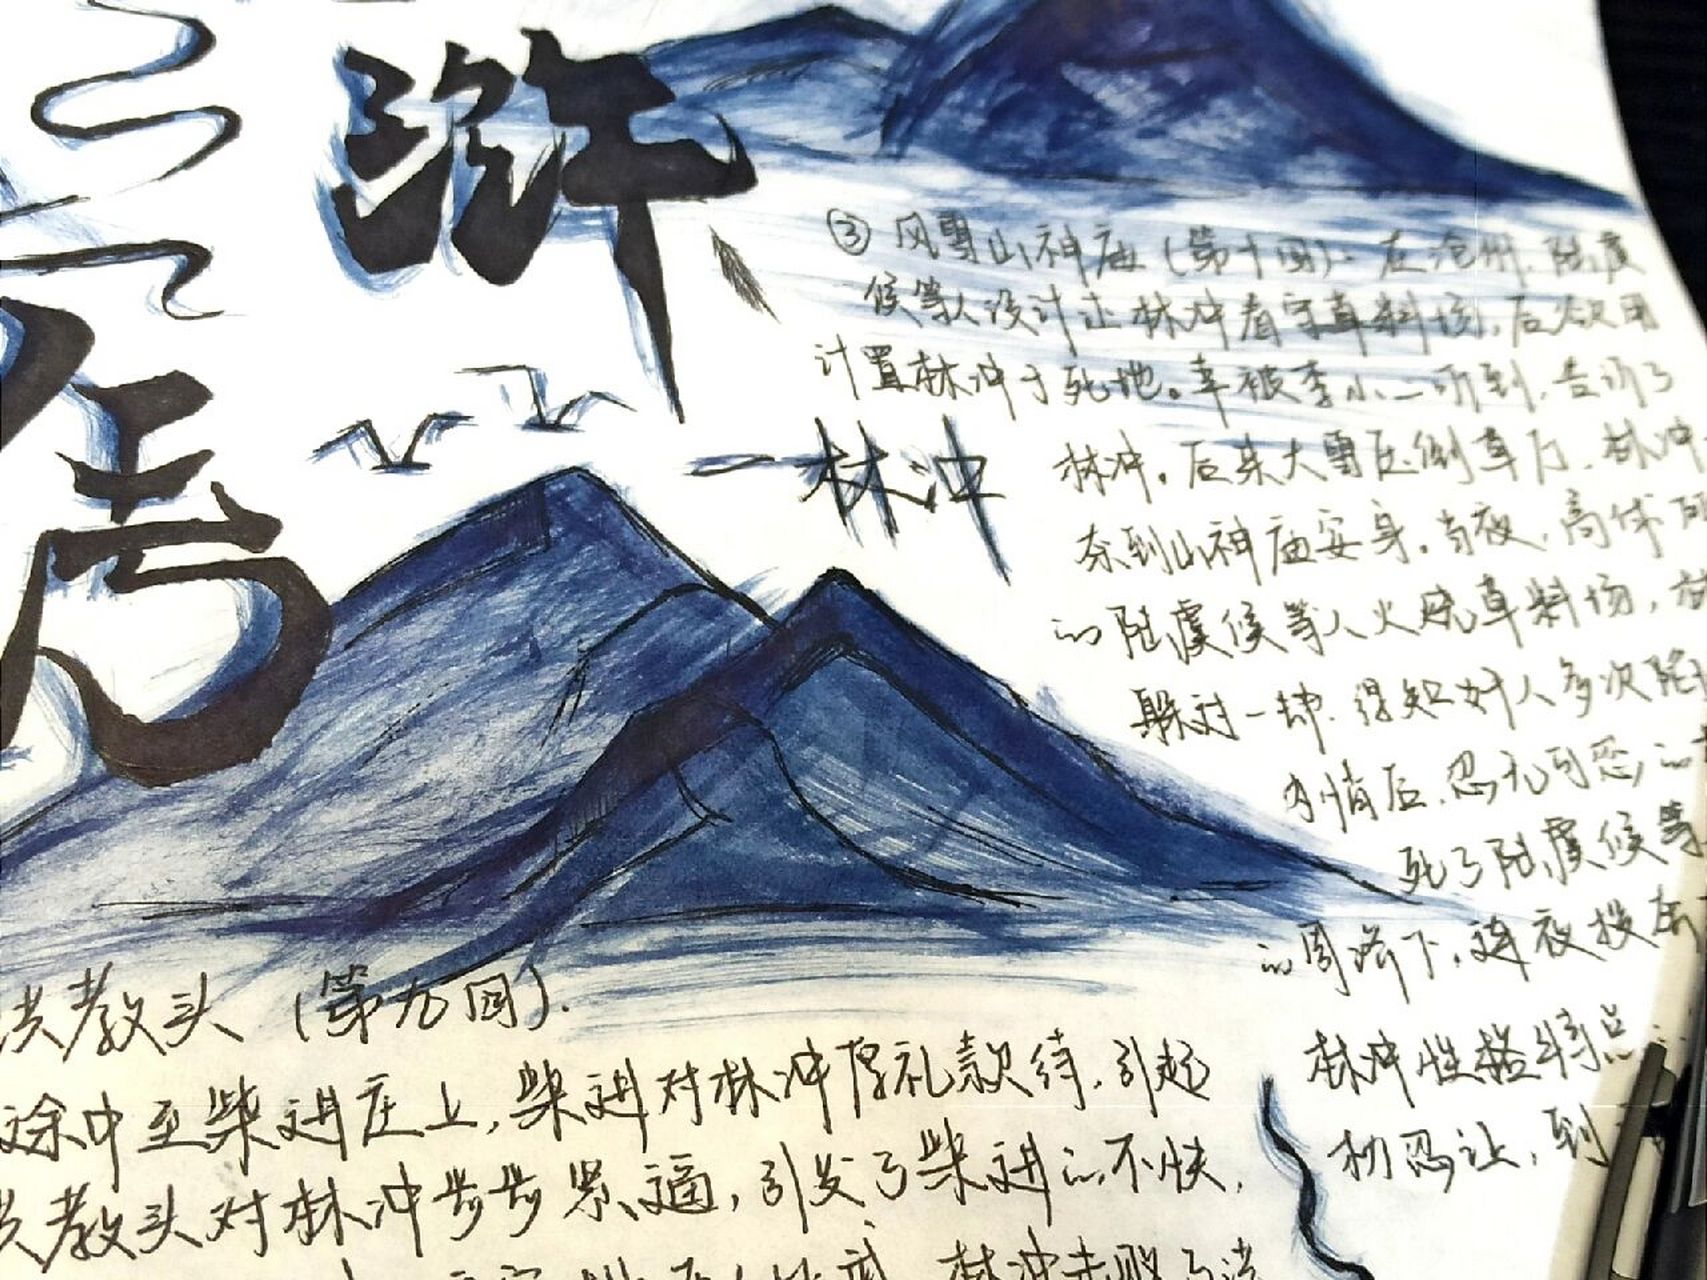 浒
传
—林冲
③ 风雪山神庙(第十回). 在沧州, 陆虞
候等人设计让林冲看守草料场, 后欲用
计置林冲于死地。幸被李小二听到, 告诉了
林冲。后来大雪压倒草厅, 林冲
来到山神庙安身。当夜, 高俅
的陆虞候等人火烧草料场,
躲过一劫. 得知奸人多次陷
内情后, 忍无可忍, 的
死了陆虞候等
的周济下, 连夜投
林冲性格特点:
初忍让, 到
洪教头 (第九回).
途中至柴进庄上, 柴进对林冲厚礼款待, 引起
洪教头对林冲步步紧逼, 引发了柴进的不快,
林冲击败了洪